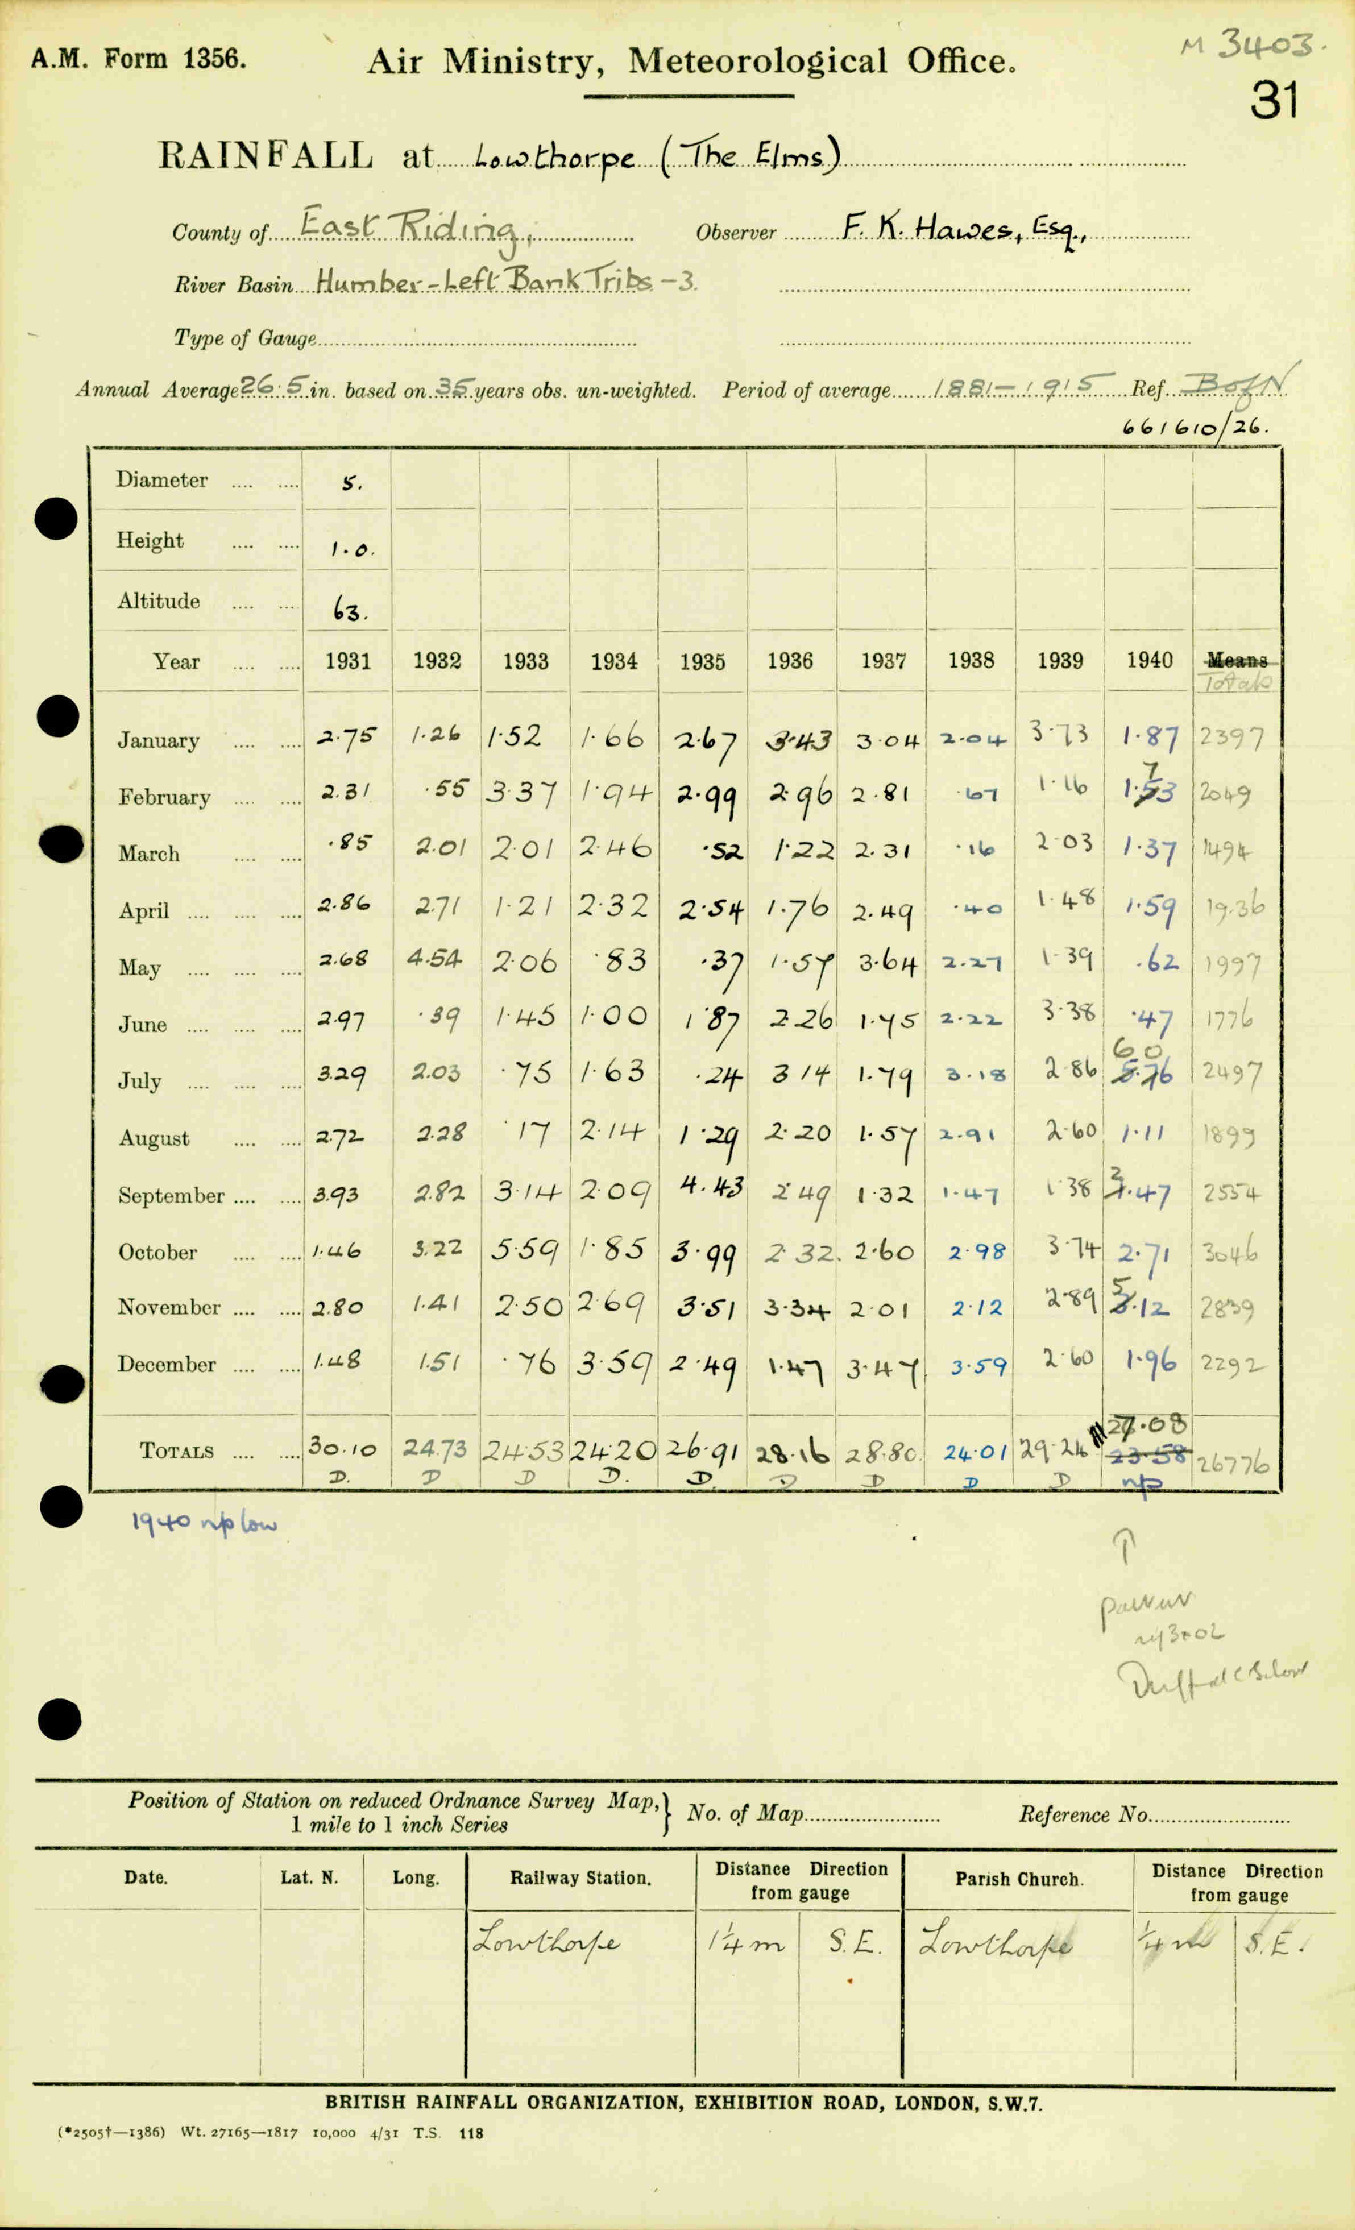 A.M. Form 1356.
Air Ministry, Meteorological Office.
M 3403.
31
RAINFALL at Lowthorpe (The Elms)
County of East Riding, Observer F. K. Hawes, Esq.,
River Basin Humber-Left Bank Tribs-3.
Type of Gauge
Annual Average 26.5 in. based on 35 years obs. un-weighted. Period of average 1881-1915 Ref. B of N
661610/26.
Diameter 5.
Height 1.0.
Altitude 63.
Year 1931 1932 1933 1934 1935 1936 1937 1938 1939 1940 Means
Totals
January 2.75 1.26 1.52 1.66 2.67 3.43 3.04 2.04 3.73 1.87 2397
February 2.31 .55 3.37 1.94 2.99 2.96 2.81 .67 1.16 1.73 2049
March .85 2.01 2.01 2.46 .52 1.22 2.31 .16 2.03 1.37 1494
April 2.86 2.71 1.21 2.32 2.54 1.76 2.49 .40 1.48 1.59 19.36
May 2.68 4.54 2.06 .83 .37 1.57 3.64 2.27 1.39 .62 1997
June 2.97 .39 1.45 1.00 1.87 2.26 1.75 2.22 3.38 .47 1776
July 3.29 2.03 .75 1.63 .24 3.14 1.79 3.18 2.86 6.06 2497
August 2.72 2.28 .17 2.14 1.29 2.20 1.57 2.91 2.60 1.11 1899
September 3.93 2.82 3.14 2.09 4.43 2.49 1.32 1.47 1.38 2.47 2554
October 1.46 3.22 5.59 1.85 3.99 2.32. 2.60 2.98 3.74 2.71 3046
November 2.80 1.41 2.50 2.69 3.51 3.34 2.01 2.12 2.89 5.12 2839
December 1.48 1.51 .76 3.59 2.49 1.47 3.47 3.59 2.60 1.96 2292
27.08
TOTALS 30.10 24.73 24.53 24.20 26.91 28.16 28.80 24.01 29.24 23.58 26776
D. D D D. D. D D D D np
1940 np low
Position of Station on reduced Ordnance Survey Map,} No. of Map Reference No.
1 mile to 1 inch Series
Date. Lat. N. Long. Railway Station. Distance Direction from gauge Parish Church. Distance Direction from gauge
Lowthorpe 1¼ m S.E. Lowthorpe ¼ m S.E.
BRITISH RAINFALL ORGANIZATION, EXHIBITION ROAD, LONDON, S.W.7.
(*2505†—1386) Wt. 27165—1817 10,000 4/31 T.S. 118